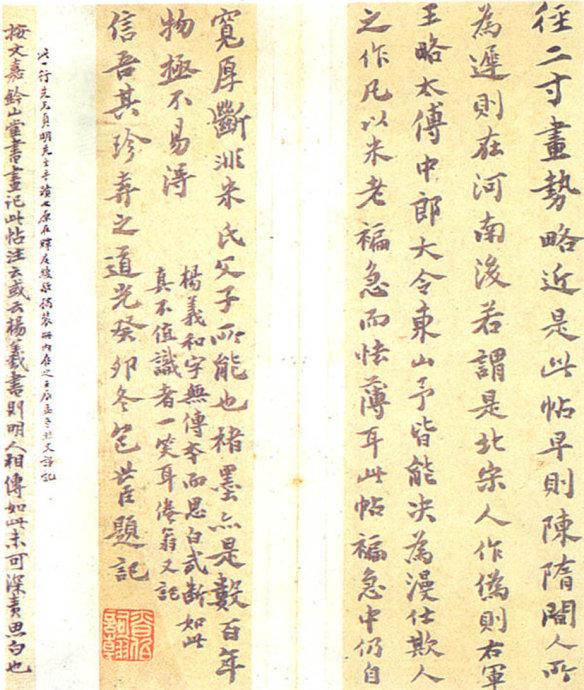 徑二寸畫勢略近是此帖早則陳隋間人所
為遲則在河南後若謂是北宋人作偽則右軍
王略太傅中郎大令東山予皆能决為漫仕欺人
之作凡以米老褊急而怯薄耳此帖褊急中仍自
寬厚斷非米氏父子所能也楮墨亦是數百年
物極不易得
楊義和字無傳本而思白武斷如此
真不值識者一笑耳倦翁又記
信吾其珍弆之道光癸卯冬包世臣題記
此一行先
按文嘉鈐山堂書畫記此帖注云或云楊羲書則明人相傳如此未可深責思白也